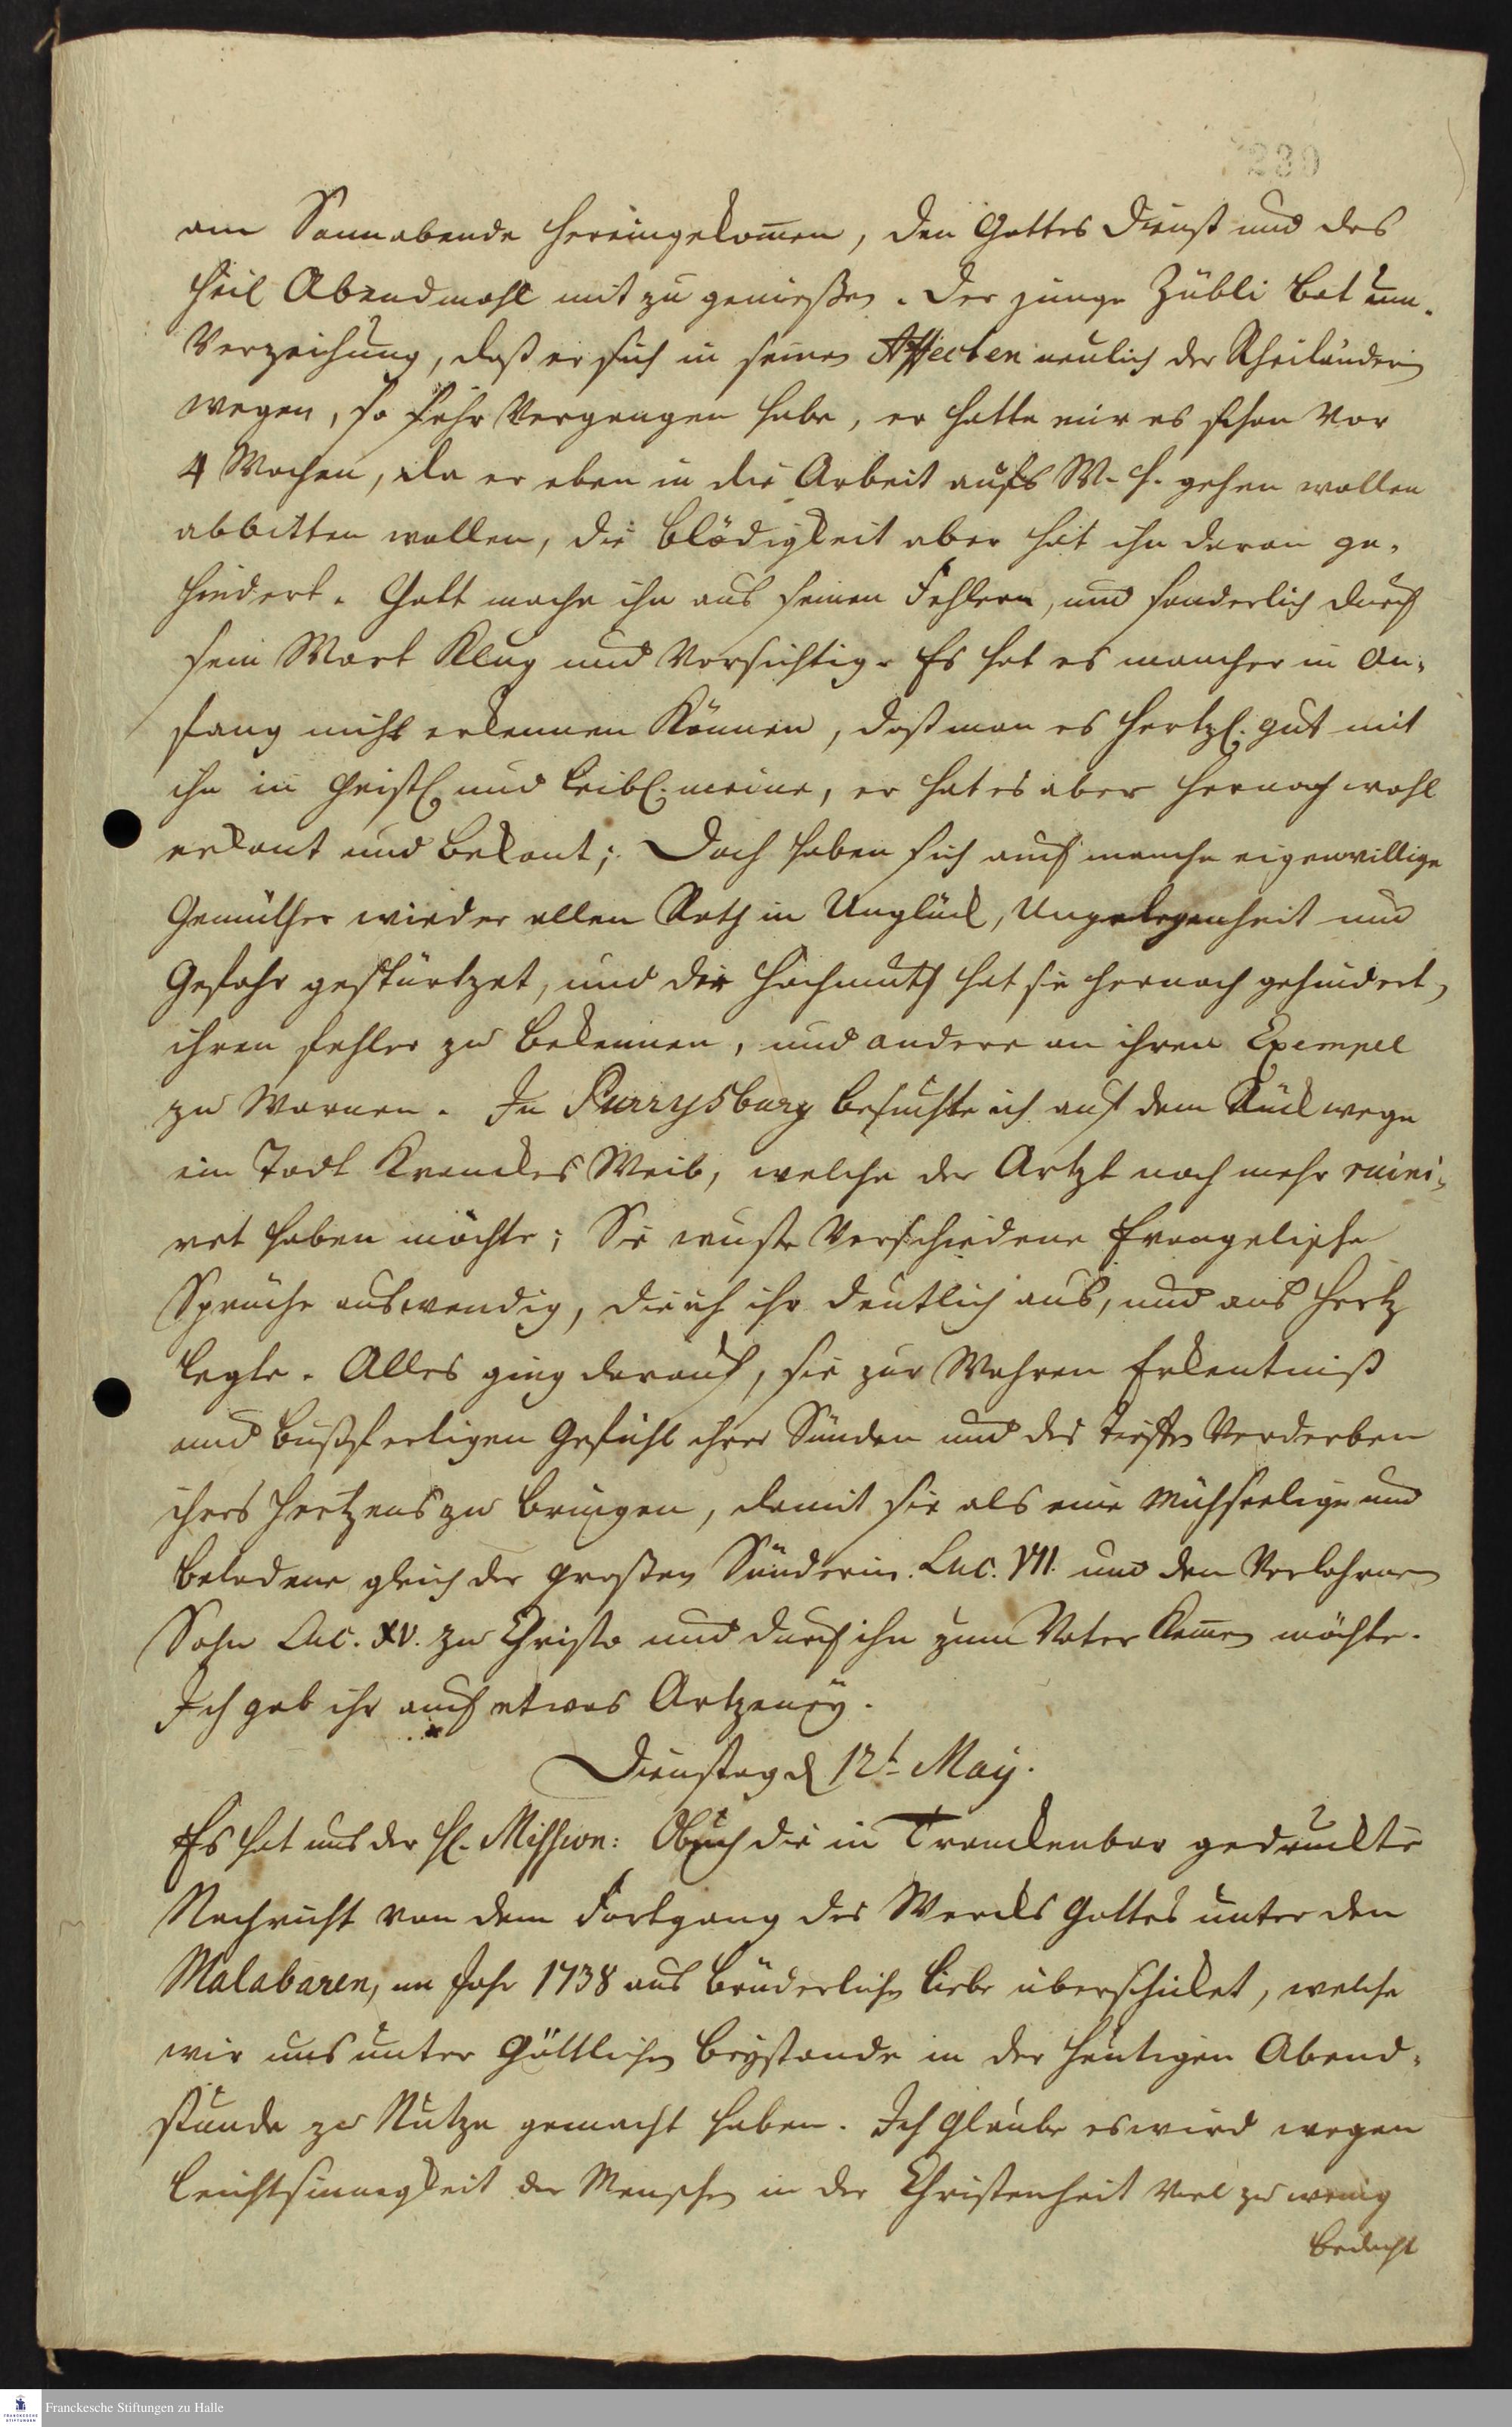 230
am Sonnabende hereingekom̄en, den Gottes Dienst und das
heil Abendmahl mit zu genießen. Der junge Zübli bat um
Verzeihung, daß er sich in seinen Affecten neulich der Rheiländer
wegen, so sehr vergangen habe, er hatte mir es schon vor
4 Wochen, da er eben in die Arbeit aufs W. h. gehen wollen
abbitten wollen, die blödigkeit aber hat ihn daran ge-
hindert. Gott mache ihn aus seinen Fehlern, und sonderlich durch
sein Wort Klug und Vorsichtig. Es hat es mancher in An-
fang nicht erkennen Können, daß man es hertzl. gut mit
ihn in geistl. und leibl. meine, er hat es aber hernach wohl
erkant und bekant; Doch haben sich auch manche eigenwillige
Gemüther wieder allen Rath in Unglück, Ungelegenheit und
Gefahr gestürtzet, und der Hochmuth hat sie hernach gehindert,
ihren fehler zu bekennen, und andere an ihren Exempel
zu Warnen. In Purrysburg besuchte ich auf dem Rückwege
ein Todt Kranckes Weib, welche der Artzt noch mehr ruini-
ret haben möchte; Sie wuste verschiedene Evangelische
Sprüche auswendig, die ich ihr deutlich aus, und ans Hertz
legte. Alles ging darauf, sie zur Wahren Erkentniß
und bußfertigen Gefühl ihrer Sünden und des tieffen Verderben
ihres Hertzens zu bringen, damit sie als eine Mühseelige und
beladene gleich der großen Sünderin. Luc. VII. und den Verlohrnen
Sohn Luc. XV. zu Christo und durch ihn zum Vater Kom̄en möchte.
Ich gab ihr auch etwas Artzeney.
Dienstag d 12t May.
Es hat uns der H. Mission: Obuch die in Tranckenbar gedruckte
Nachricht von dem Fortgang des Wercks Gottes unter den
Malabaren, im Jahr 1738 aus brüderlicher Liebe überschicket, welche
wir uns unter Göttlichen beystande in der heutigen Abend-
stunde zu Nutze gemacht haben. Ich glaube es wird wegen
leichtsinnigkeit der Menschen in der Christenheit viel zu wenig
bedacht
Franckesche Stiftungen zu Halle